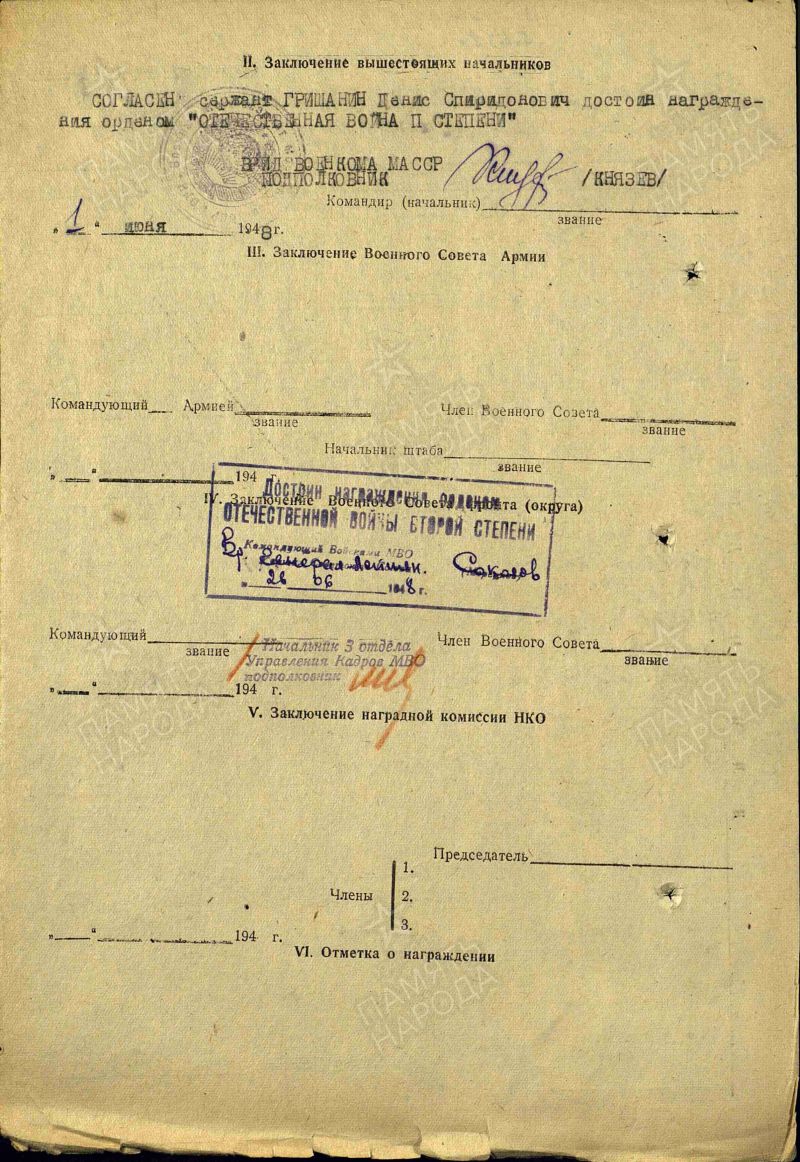 II. Заключение вышестоящих начальников
СОГЛАСЕН сержант ГРИШАНИН Денис Спиридонович достоин награжде-
ния орденом "ОТЕЧЕСТВЕННАЯ ВОЙНА П СТЕПЕНИ"
ВРИД ВОЕНКОМА МАССР
ПОДПОЛКОВНИК /КНЯЗЕВ/
Командир (начальник)
звание
„ 1 " июня 1948 г.
III. Заключение Военного Совета Армии
Командующий Армией Член Военного Совета
звание звание
Начальник штаба
звание
„ " 194 г.
IV. Заключение Военного Совета фронта (округа)
Достоин награждения орденом
ОТЕЧЕСТВЕННОЙ ВОЙНЫ ВТОРОЙ СТЕПЕНИ
Командующий Войсками МВО
Вр. Генерал-лейтен. Соколов
„ 26 06 1948 г.
Командующий Член Военного Совета
звание звание
Начальник 3 отдела
Управления Кадров МВО
подполковник
„ " 194 г.
V. Заключение наградной комиссии НКО
Председатель
1.
Члены 2.
3.
„ " 194 г.
VI. Отметка о награждении
ПАМЯТЬ НАРОДА